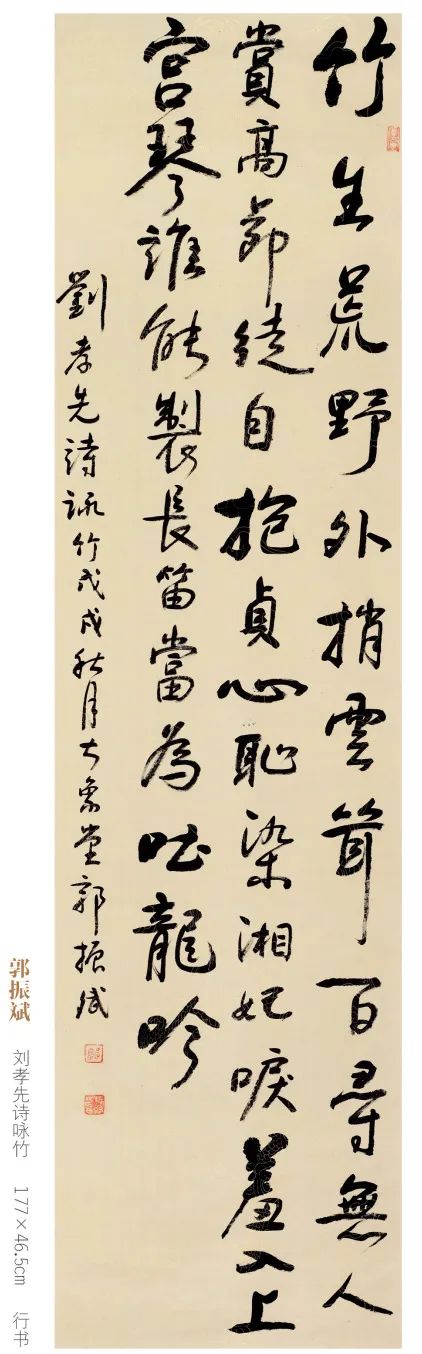 竹生荒野外捎雲聳百尋無人
賞高節徒自抱貞心恥染湘妃唳羞入上
宫琴誰能製長笛當為吐龍吟
劉孝先詩詠竹戊戌秋月大象堂郭振斌
郭振斌 刘孝先诗咏竹 177×46.5cm 行书